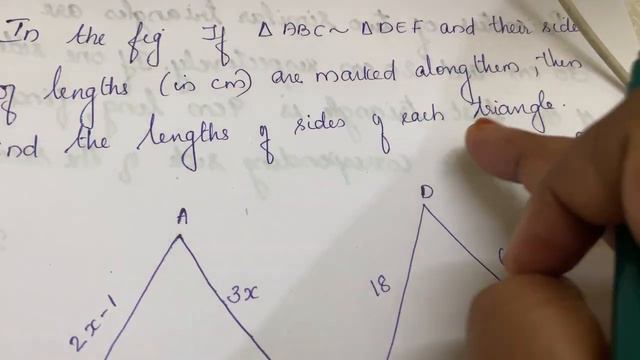 In the fig If △ABC ~ △DEF and their side
of lengths (in cm) are marked along them, then
the lengths of sides of each triangle.
A
D
2x-1
3x
18